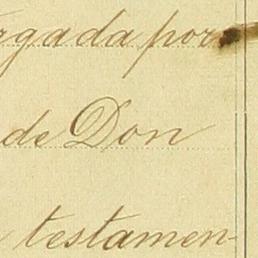 rgada por
de Don
testamen